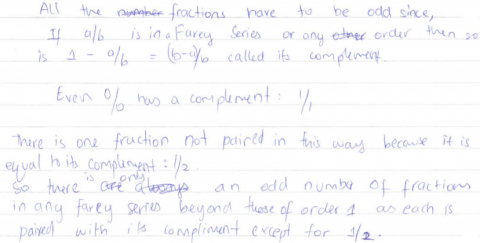 All the number fractions have to be odd since,
If a/b is in a Farey Series or any other order then so
is 1 - a/b = (b-a)/b called its complement.
Even 0/0 has a complement: 1/1
There is one fraction not paired in this way because it is
equal to its complement: 1/2.
So there is only an odd number of fractions
in any farey series beyond those of order 1 as each is
paired with its compliment except for 1/2.